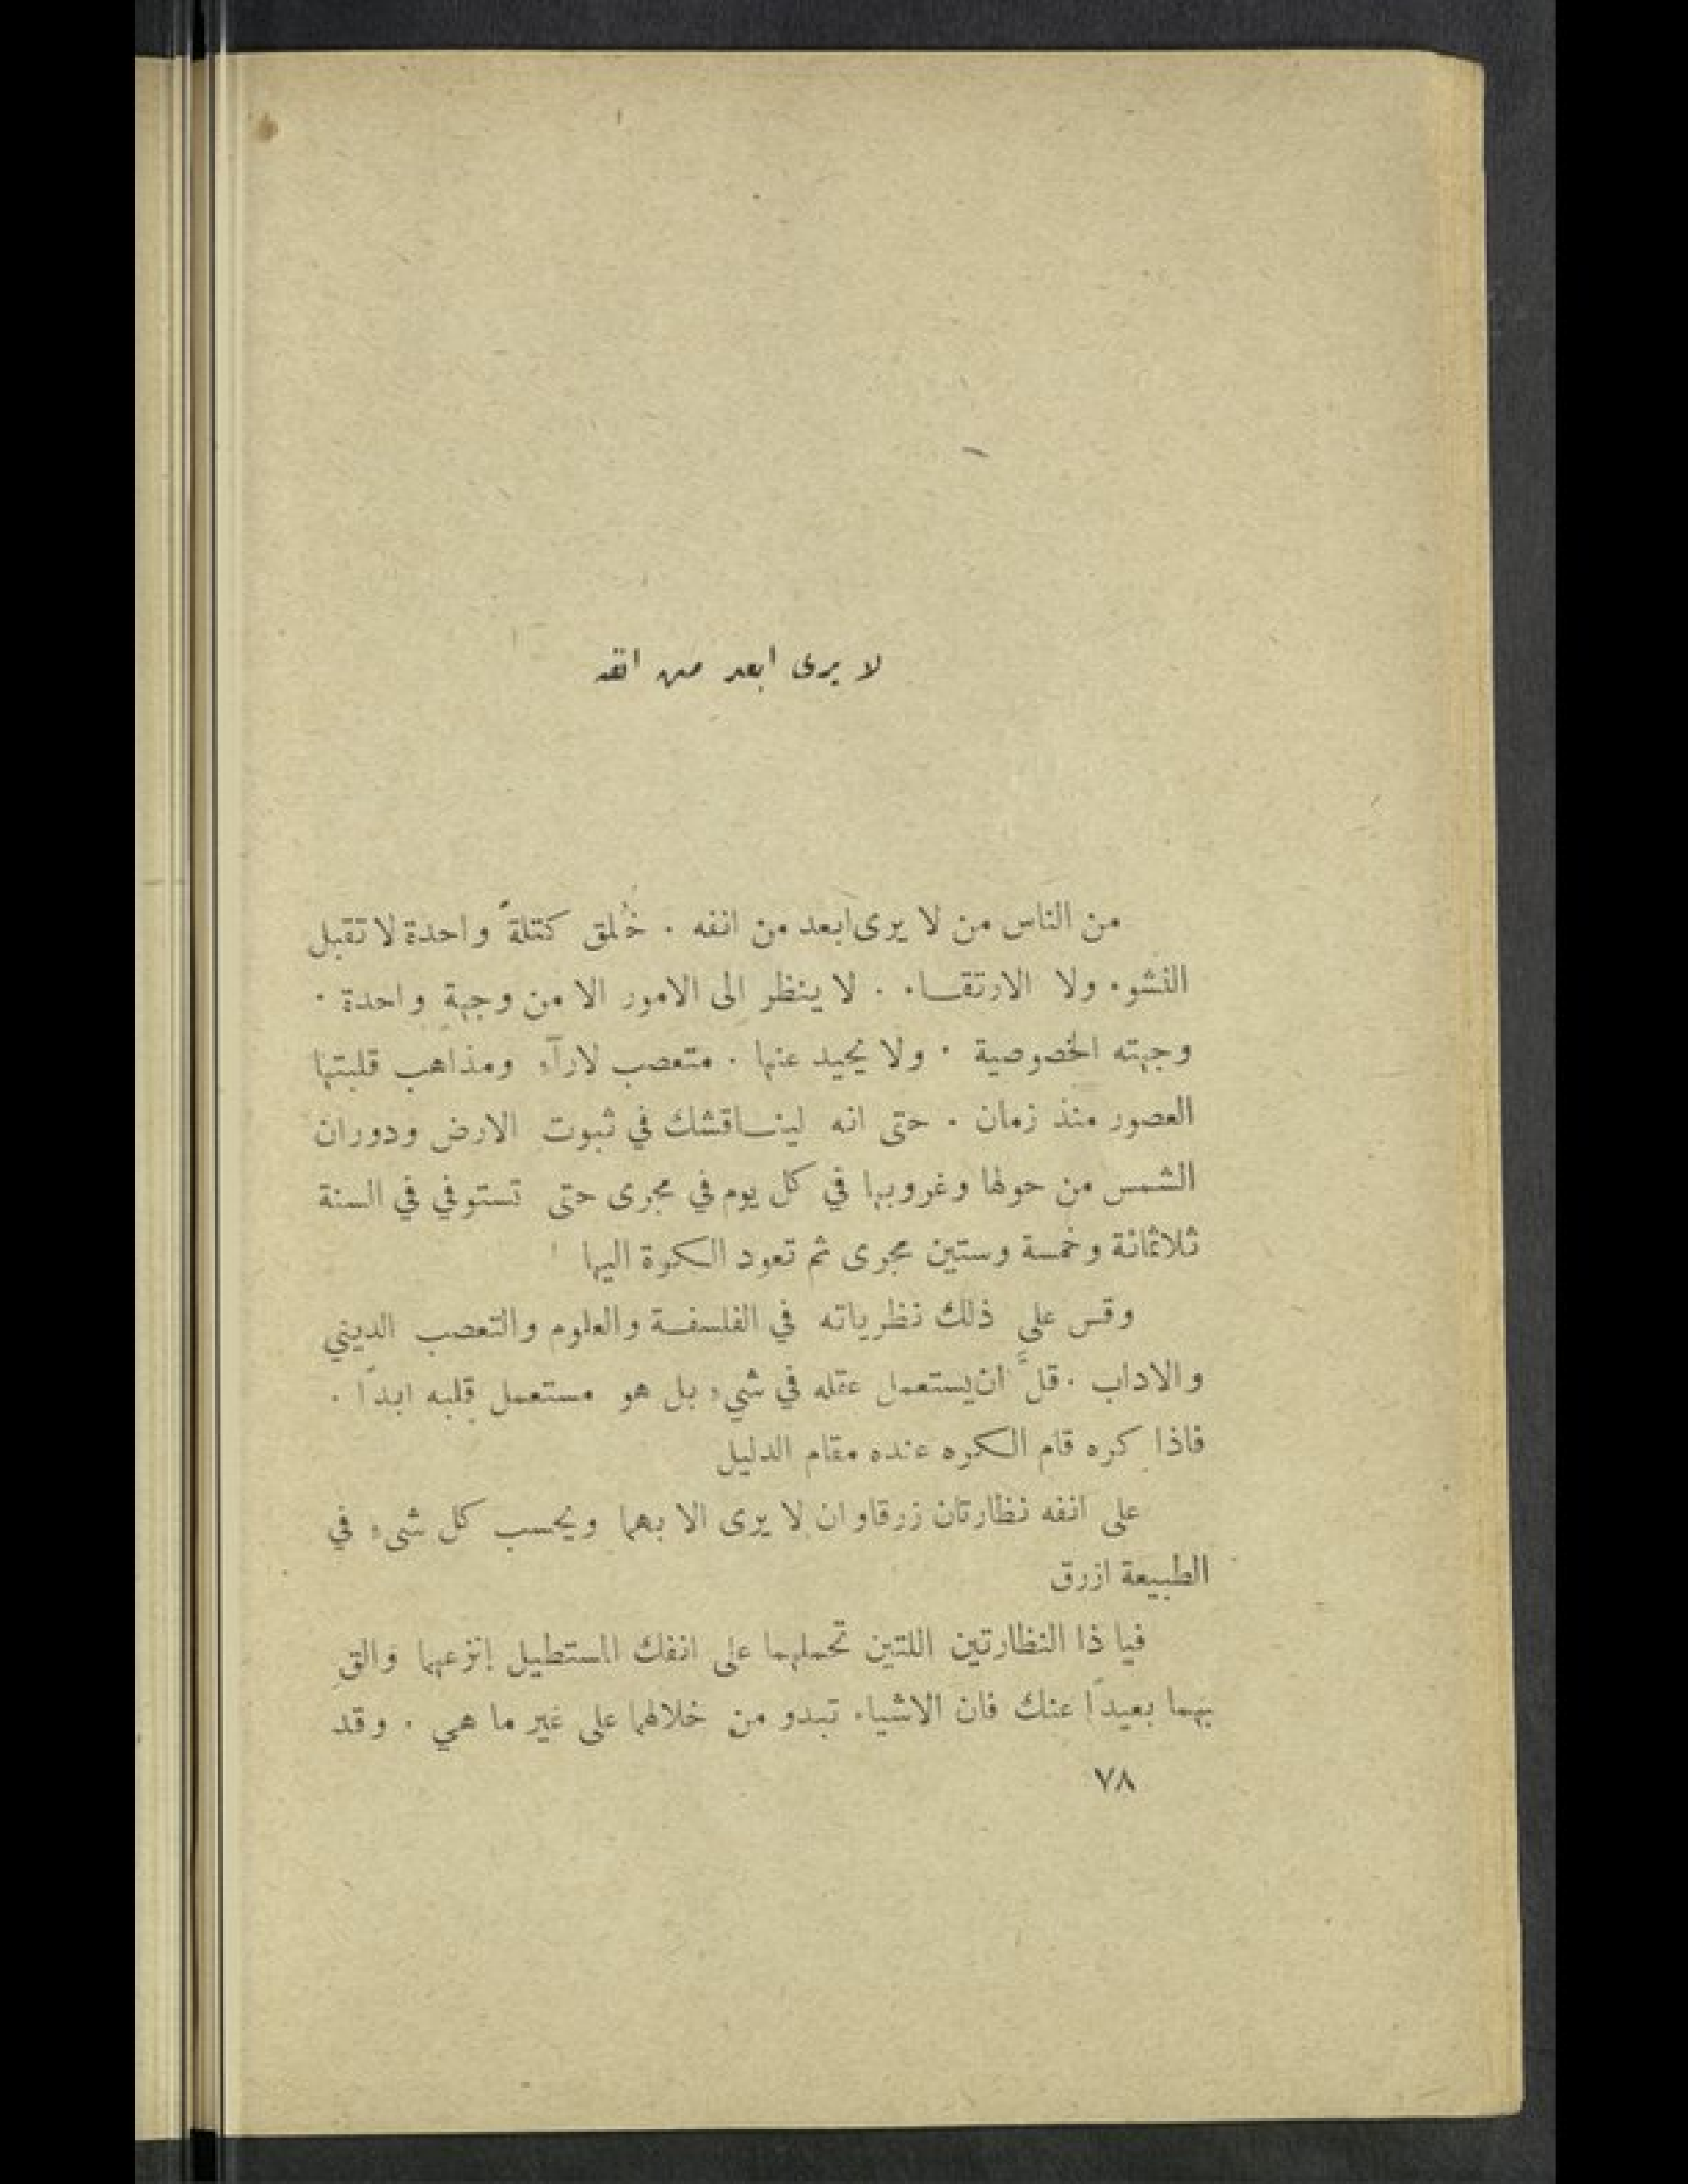 لا يرى ابعد من انفه
من الناس من لا يرى ابعد من انفه . خُلق كتلةً واحدة لا تقبل
النشوء ولا الارتقـاء . لا ينظر الى الامور الا من وجهةٍ واحدة .
وجهته الخصوصية . ولا يحيد عنها . متعصب لارآءِ ومذاهب قلبتها
العصور منذ زمان . حتى انه لينـاقشك في ثبوت الارض ودوران
الشمس من حولها وغروبها في كل يوم في مجرى حتى تستوفي في السنة
ثلاثمائة وخمسة وستين مجرى ثم تعود الكرة اليها !
وقس على ذلك نظرياته في الفلسفـة والعلوم والتعصب الديني
والاداب . قلَّ ان يستعمل عقله في شيءٍ بل هو مستعمل قلبه ابداً .
فاذا كره قام الكره عنده مقام الدليل
على انفه نظارتان زرقاوان لا يرى الا بهما ويحسب كل شيءٍ في
الطبيعة ازرق
فيا ذا النظارتين اللتين تحملهما على انفك المستطيل إنزعهما والقِ
بهما بعيداً عنك فان الاشياء تبدو من خلالهما على غير ما هي . وقد
٧٨